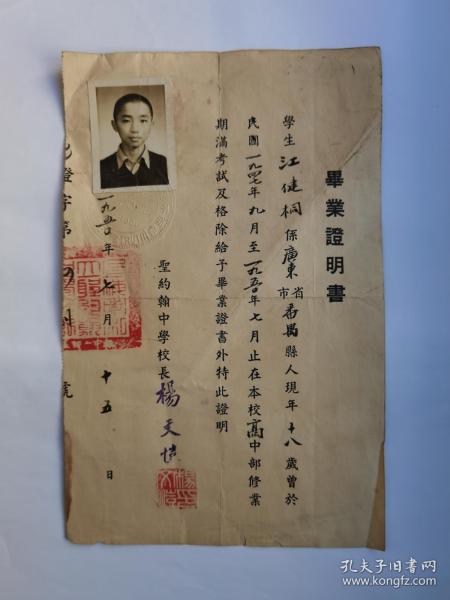 畢業證明書
學生江健桐係廣東省市番禺縣人現年十八歲曾於
民國一九四七年九月至一九五〇年七月止在本校高中部修業
期滿考試及格除給予畢業證書外特此證明
聖約翰中學校長楊文愷
一九五〇年七月十五日
證字第
號
孔夫子旧书网
www.kongfz.com